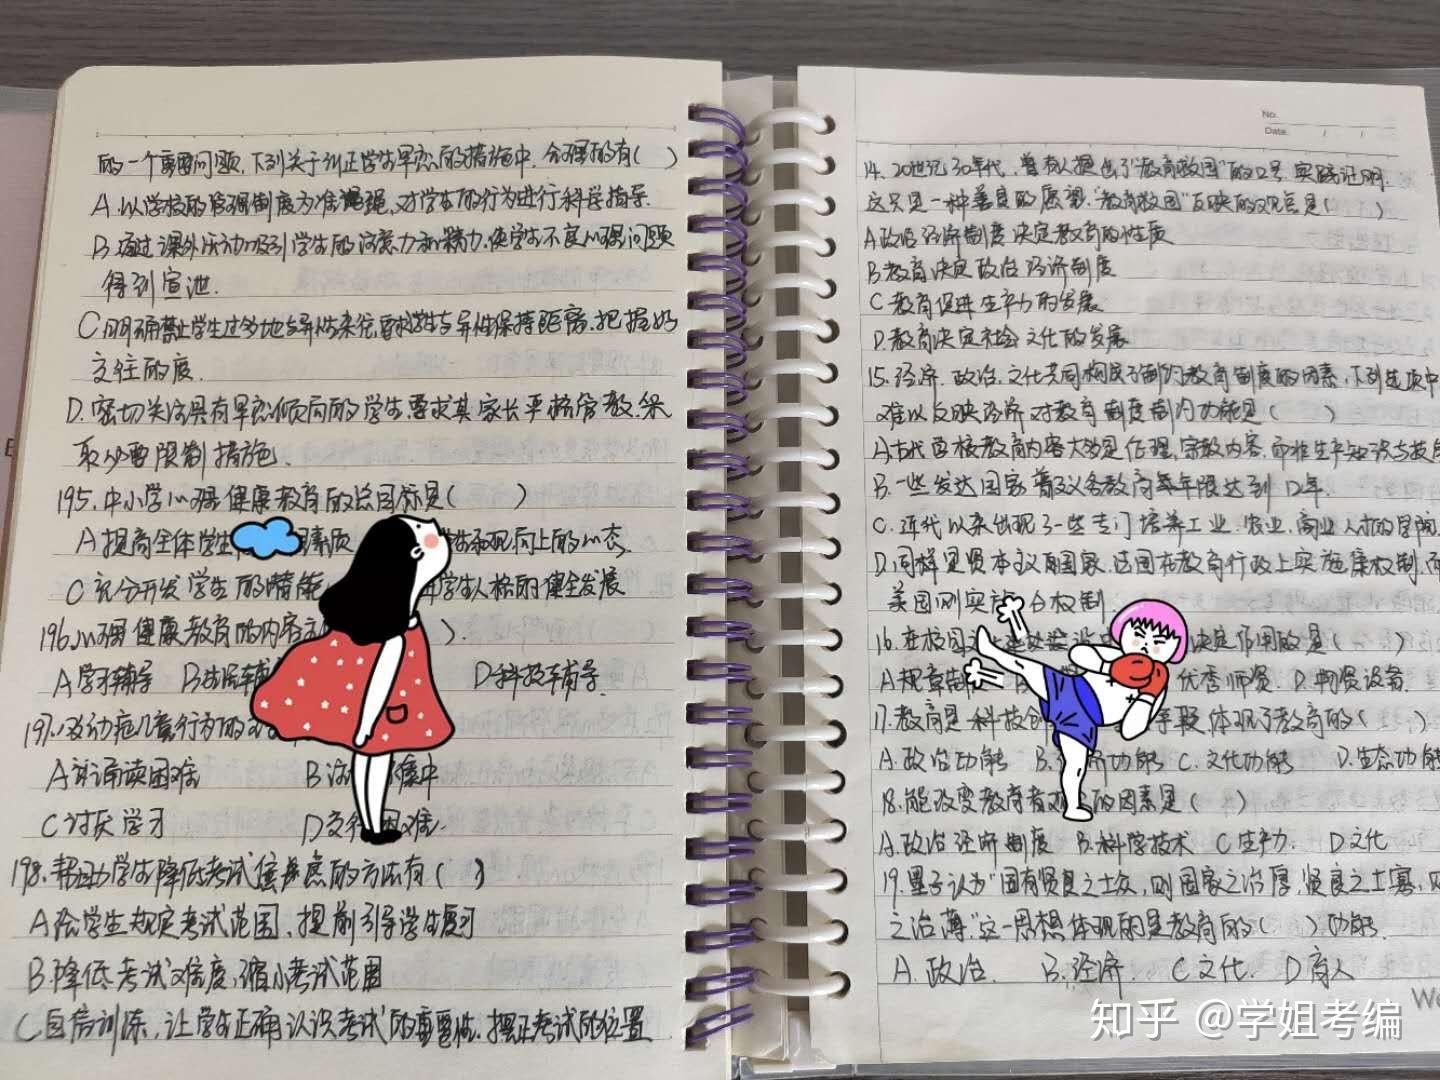 的一个重要问题,下列关于纠正学生早恋的措施中,合理的有( )
A.以学校的管理制度为准绳,对学生的行为进行科学指导.
B.通过课外活动吸引学生的注意力和精力,使学生不良心理问题
得到宣泄.
C.明确禁止学生过多地与异性来往,要求学生与异性保持距离.把握好
交往的度.
D.密切关注具有早恋倾向的学生,要求其家长严格管教,采
取必要限制措施.
195.中小学心理健康教育的总目标是( )
A提高全体学生 素质 和观向上的心态.
C充分开发学生的潜能 学生人格的健全发展
196.心理健康教育的内容 ).
A学习辅导 B生活辅 D科技辅导.
197. 幼症儿童行为的
A诵读困难 B 集中
C讨厌学习 D交往困难.
198.帮助学生降低考试焦虑的方法有( )
A给学生规定考试范围、提前引导学生复习
B.降低考试难度,缩小考试范围
C自信训练,让学生正确认识考试的重要性.摆正考试的位置
No.
Date. / /
14.20世纪30年代,曾有人提出了"教育救国"的口号,实践证明,
这只是一种善良的愿望."教育救国"反映的观点是( )
A政治经济制度决定教育的性质
B教育决定政治经济制度
C教育促进生产力的发展
D.教育决定社会文化的发展
15.经济、政治、文化共同构成了制约教育制度的因素,下列选项中
难以反映经济对教育制度制约功能是( )
A古代学校教育内容大多是伦理、宗教内容,而非生产知识与技
B.一些发达国家普及义务教育年限达到12年.
C.近代以来出现了一些专门培养工业、农业、商业人才的学院.
D.同样是资本主义国家,法国在教育行政上实施集权制,而
美国则实施 分权制
16.在校园 建设 决定作用的是( )
A.规章制 优秀师资 D.物质设备.
17.教育是科技创 手段,体现了教育的( )
A.政治功能 B.经济功能 C.文化功能 D.生态功能
18.能改变教育者观 的因素是( )
A.政治经济制度 B.科学技术 C生产力. D文化
19.墨子认为"国有贤良之士众,则国家之治厚,贤良之士寡,
之治薄."这一思想体现的是教育的( )功能.
A.政治. B.经济. C文化. D育人
知乎 @学姐考编